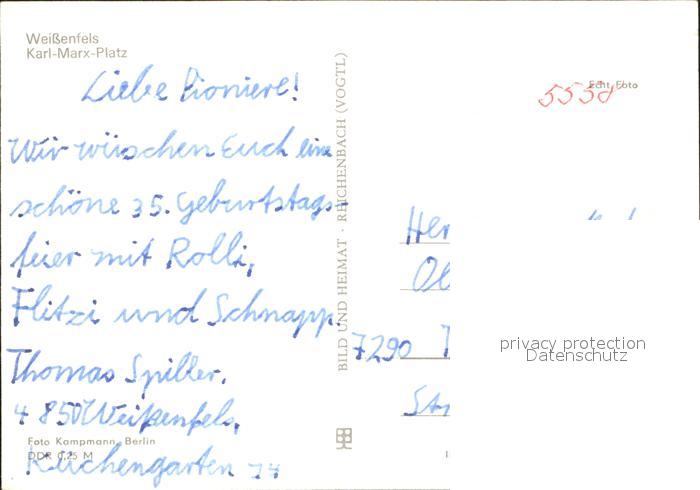 Weißenfels
Karl-Marx-Platz
Liebe Pioniere!
Wir wüschen Euch eine
schöne 35. Geburtstags-
feier mit Rolli,
Flitzi und Schnapp.
Thomas Spiller.
4 850 Weißenfels,
Küchengarten 74
Foto Kampmann, Berlin
DDR 0,25 M
BILD UND HEIMAT · REICHENBACH (VOGTL)
Echt Foto
Her
Ol
7290
St
privacy protection
Datenschutz